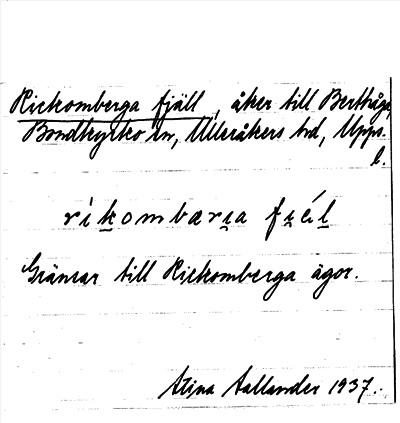 Rickomberga fjäll, åker till Berthåga,
Bondkyrko sn, Ulleråkers hd, Upps.
l.
ríkombarıa fıél
Gränsar till Rickomberga ägor.
Stina Sallander 1937.